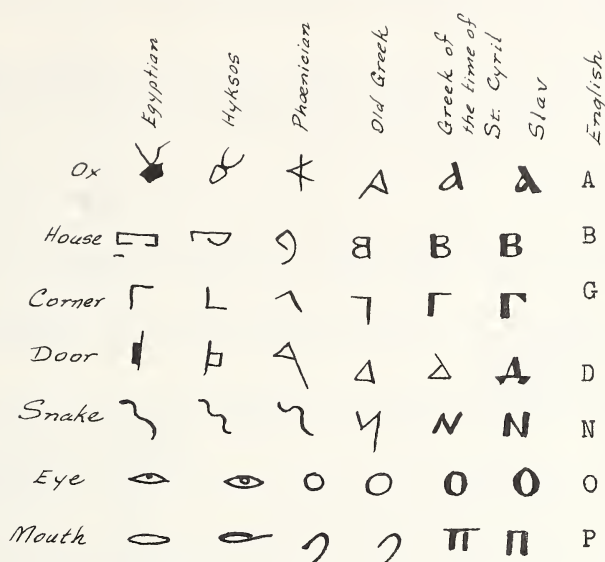 Egyptian Hyksos Phœnician Old Greek Greek of the time of St. Cyril Slav English
Ox A
House B B B
Corner Γ Γ G
Door Δ Д D
Snake N N N
Eye O O O O O
Mouth π П P